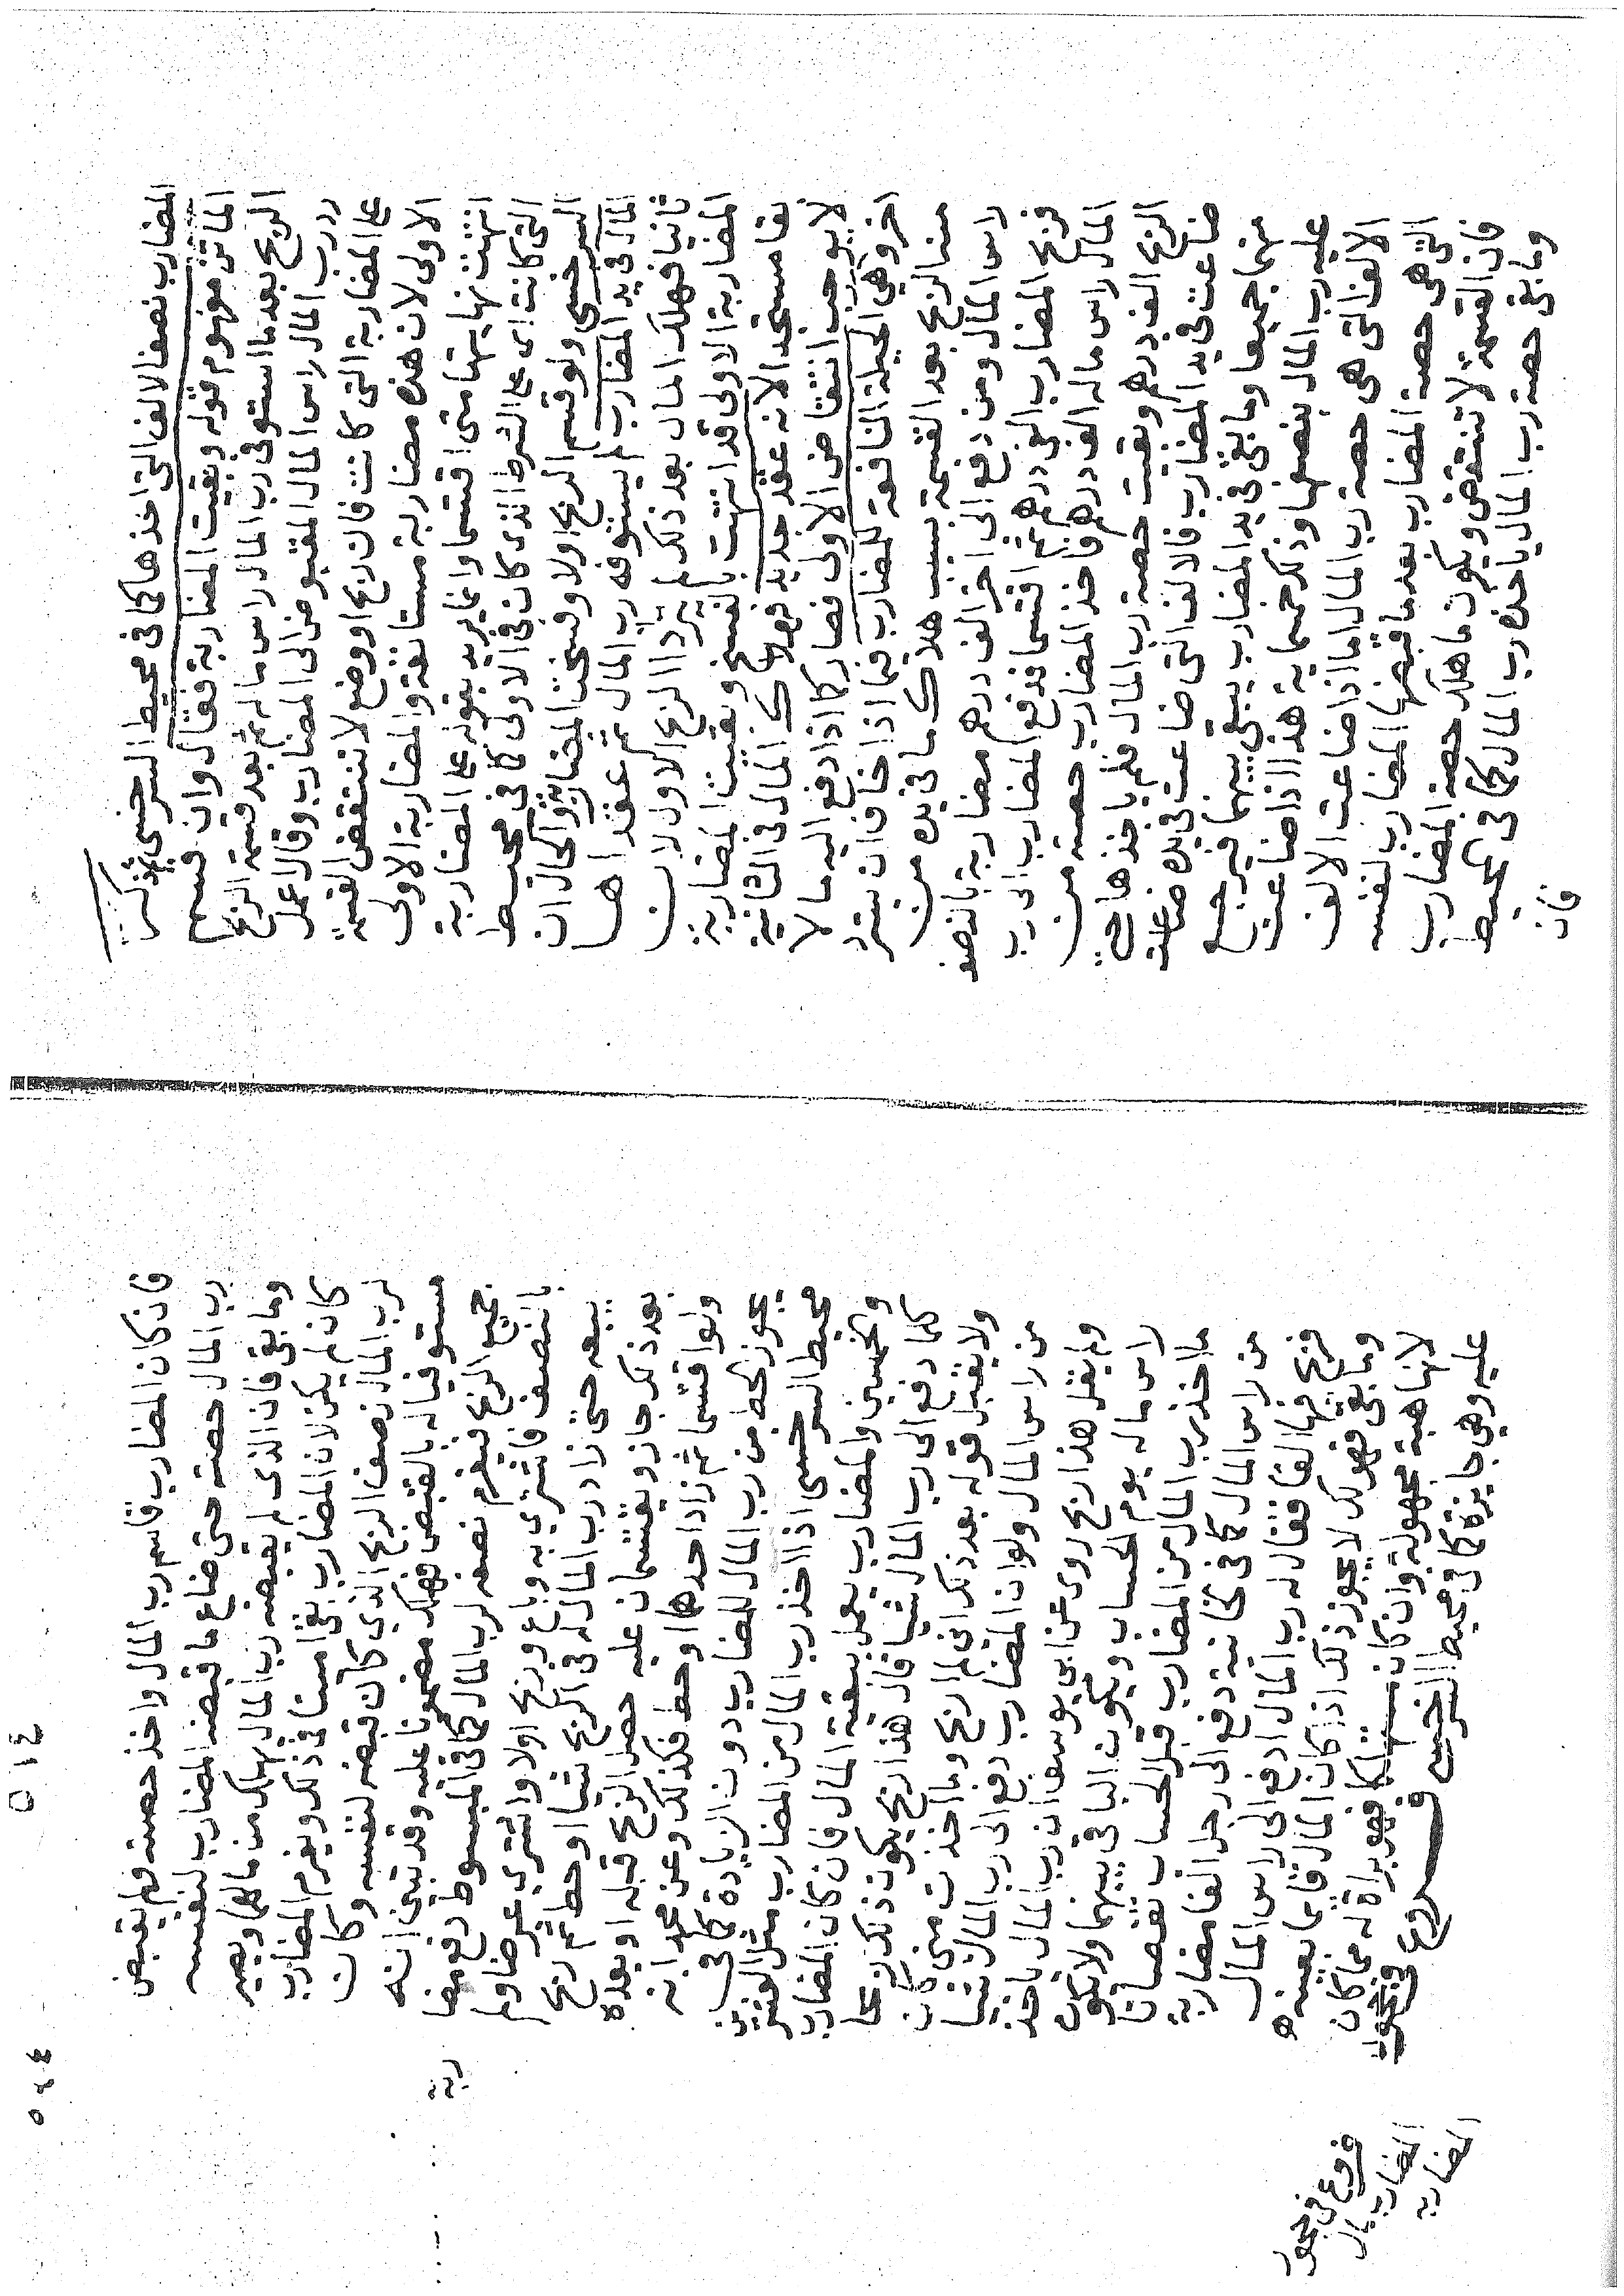 المضارب نصفا لالف التى اخذها كما فى محيط السرخسى ثم ذكر
الماتن مفهوم قوله وبقيت المضاربة فقال وان قسم
الربح بعد ما استوفى رب المال راس ماله ثم بعد قسمة الربح
رد رب المال راس المال المقبوض الى المضارب وقال اعمل
على المضاربة التى كانت فان ربح او وضع لا تنتقض القسمة
الاولى لان هذه مضاربة مستأنفة والمضاربة الاولى
انتهت نهايتها متى اقتسما وانما يريد بقوله على المضاربة
التى كانت اى على الشرط الذى كان فى الاولى كما فى محيط
السرخسى ولو قسم الربح اولا وفسخت المضاربة والحال ان
المال فى يد المضارب لم يستوفه رب المال ثم عقداها
ثانيا فهلك المال بعد ذلك لم يترادا الربح الاول لان
المضاربة الاولى قد انتهت بالفسخ وبقيت المضاربة
بقا مستجدا لانه عقد جديد فهلاك المال فى الثانية
لا يوجب انتقاض الاولى فصار كما اذا دفع اليه مالا
اخر وهى الحيلة النافعة للمضارب فيما اذا خاف ان يسترد
منه الربح بعد القسمة بسبب هلاك ما فى يده من
راس المال ومن دفع الى اخر الف درهم مضاربة بالنصف
فربح المضارب الفى درهم ثم اقتسما فدفع المضارب الى رب
المال راس ماله الف درهم فاخذ المضارب حصته من
الربح الف درهم وبقيت حصة رب المال فلم ياخذها حتى
ضاعت فى يد المضارب فالالف التى ضاعت فى يده ضاعت
منهما جميعا وما بقى فى يد المضارب يبقى بينهما فيرجع
عليه رب المال بنصفها وذلك خمسماية هذا اذا ضاعت
الالف التى هى حصة رب المال اما اذا ضاعت الالف
التى هى حصة المضارب بعد ما قبضها المضارب لنفسه
فان القسمة لا تنتقض ويكون ما هلك حصة المضارب
وما بقى حصة رب المال ياخذه رب المال كما فى المحيط
فان
٤١٥
٥٤٤
فان كان المضارب قاسم رب المال واخذ حصته فلم يقبض
رب المال حصته حتى ضاع ما قبضه المضارب لنفسه
وما بقى فان الذى لم يقبضه رب المال يهلك من مالهما ويصير
كان لم يكن لان المضارب بقى امينا فى ذلك ويغرم المضارب
لرب المال نصف الربح الذى كان قبضه لنفسه وكان
مستوفيا له بالقبض فهلك مضمونا عليه وقد تبين انه
جميع الربح فيغرم نصفه لرب المال كما فى المبسوط دفع مضا
ربة
بالنصف فاشترى به وباع وربح اولا واشترى عرضا ولم
يبعه حتى زاد رب المال له فى الربح شيا او حط ثم ربح
بعد ذلك جاز ويقتسمان عليه حصل الربح قبله او بعده
ولو اقتسما ثم زاد احدهما او حط فكذلك وعن محمد انه
يجوز الحط من رب المال للمضارب دون الزيادة كما فى
محيط السرخسى اذا اخذ رب المال من المضارب مثل العشرين
والخمسين والمضارب يعمل ببقية المال فان كان المضارب
كلما دفع الى رب المال شيا قال هذا ربح يكون ذلك ربحا
ولا يقبل قوله بعد ذلك انى لم اربح وما اخذت منى كان
من راس المال ولو ان المضارب دفع الى رب المال شيا
ولم يقل هذا ربح روى عن ابى يوسف ان رب المال ياخذ
راس ماله يوم الحساب ويكون الباقى بينهما ولا يكون
ما اخذ رب المال من المضارب قبل الحساب نقصانا
من راس المال كما فى الخانية دفع الى رجل الفا مضاربة
فربح فيها الفا فقال له رب المال ادفع الى راس المال
وما بقى فهو لك لا يجوز ذلك اذا كان المال قايما بعينه
لانها هبة مجهولة وان كان مستهلكا فهو براة له مما كان
عليه وهى جايزة كما فى محيط السرخسى فروع فى جحود
فروع فى جحود
المضارب مال
المضاربه